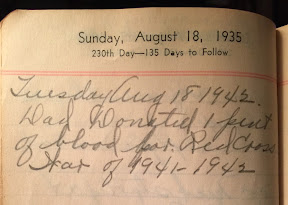 Sunday, August 18, 1935
230th Day—135 Days to Follow
Tuesday Aug 18 1942.
Dad Donated 1 pint
of blood for Red Cross
War of 1941-1942